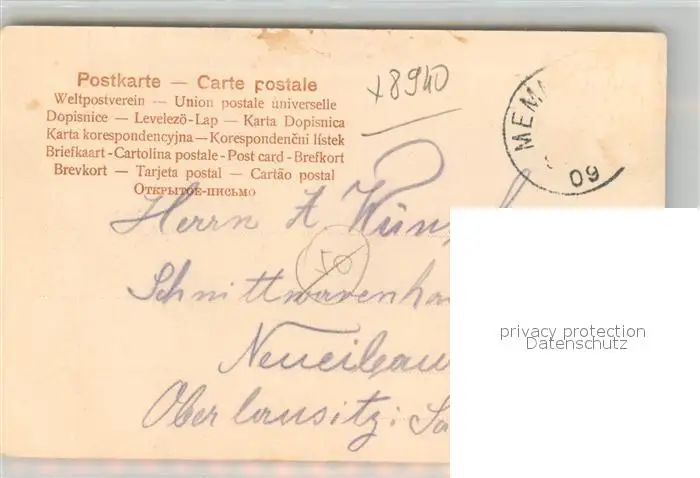 Postkarte — Carte postale
Weltpostverein — Union postale universelle
Dopisnice — Levelező-Lap — Karta Dopisnica
Karta korespondencyjna — Korespondenčni lístek
Briefkaart - Cartolina postale - Post card - Brefkort
Brevkort — Tarjeta postal — Cartão postal
Открытое-письмо
+8940
MEM
09
Herrn A
50
Schnittwarenha
Oberlausitz: Sa
privacy protection
Datenschutz